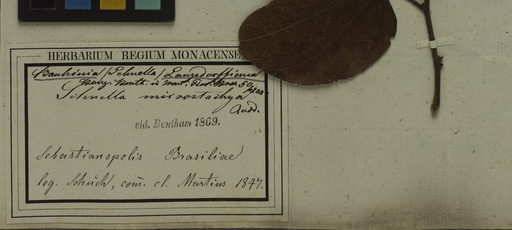 HERBARIUM REGIUM MONACENSE
Bauhinia (Schnella) Langsdorffiana
Benth. in Mart. Flor. Bras.
Schnella microstachya
Radd.
vid. Bentham 1869.
Sebastianopolis Brasiliae
leg. Schüch, com. cl. Martius 1847.